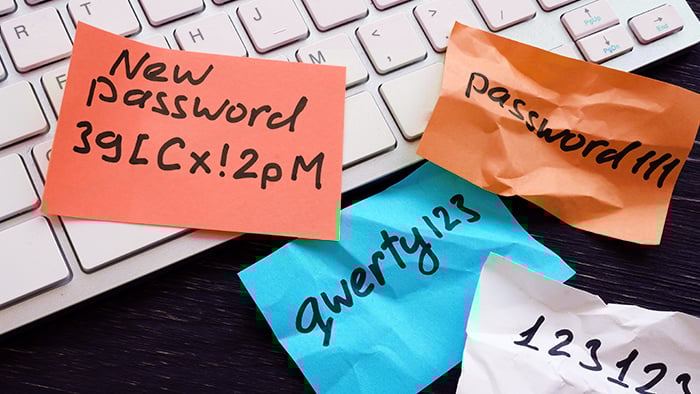 New
password
3g[Cx!2pM
password111
qwerty123
123123
R
T
J
M
<
,
>
.
PgUp
PgDn
End